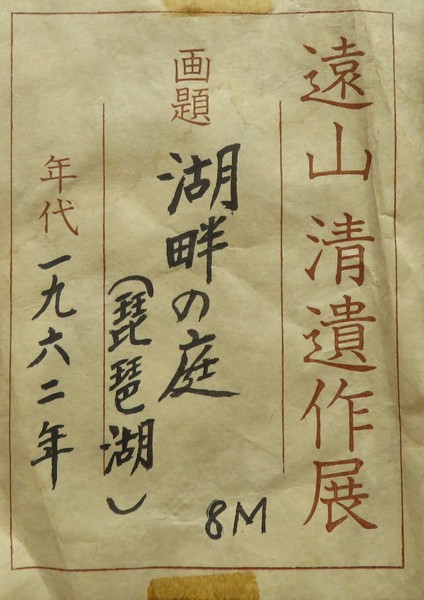 遠山清遺作展
画題 湖畔の庭
（琵琶湖）
8M
年代 一九六二年